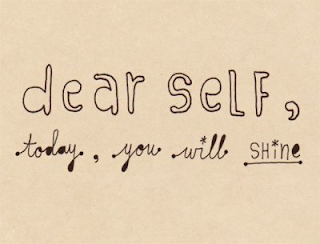 dear self,
today, you will shine